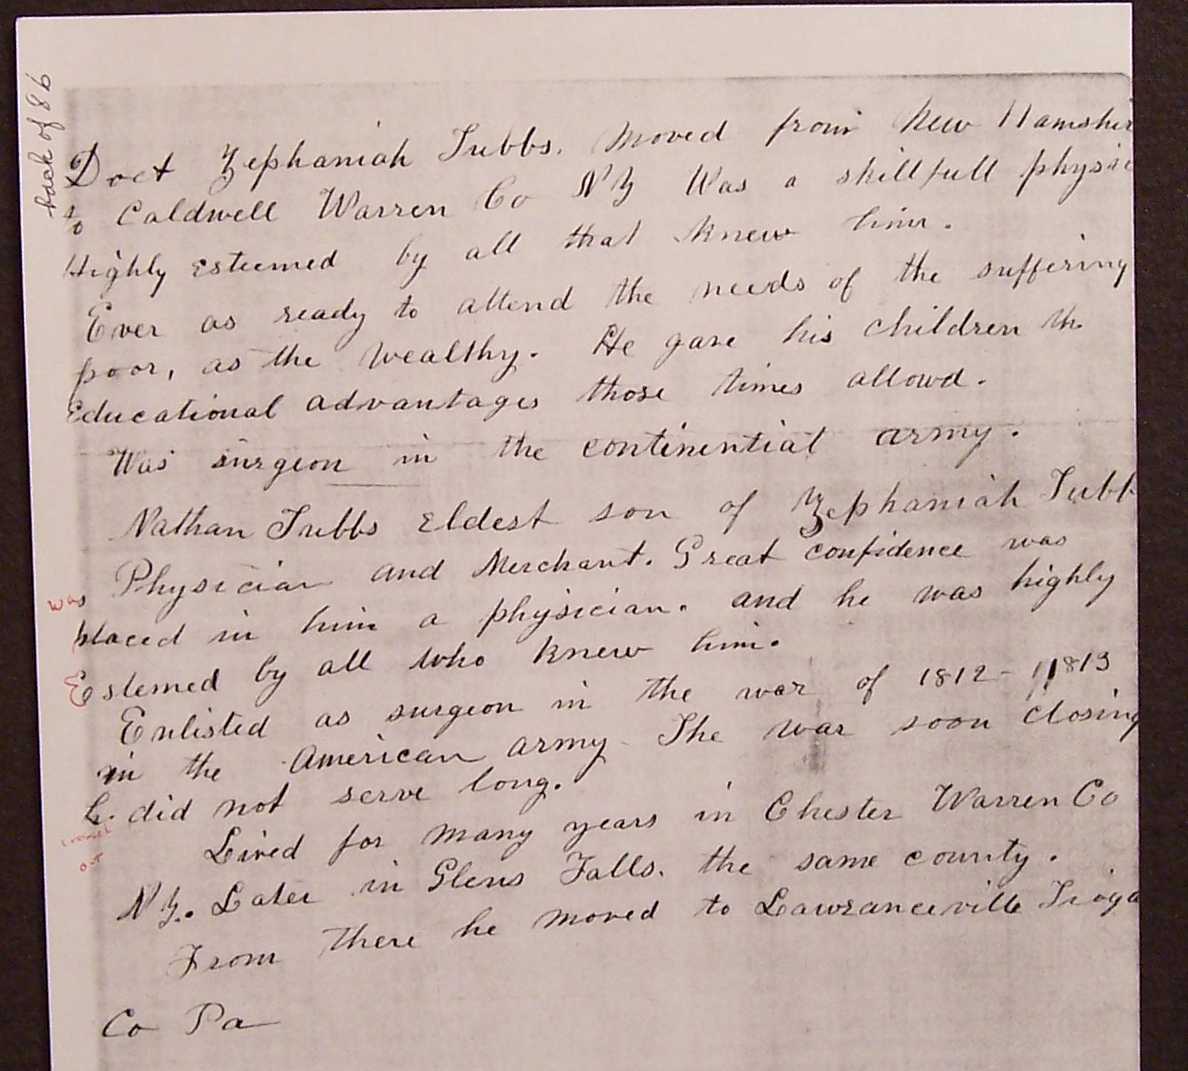 back of 86
Doct Zephaniah Tubbs. Moved from New Hamshir
to Caldwell Warren Co N Y Was a skillfull physic
Highly esteemed by all that knew him.
Ever as ready to attend the needs of the suffering
poor, as the wealthy. He gave his children the
Educational advantages those times allowd.
Was surgeon in the continential army.
Nathan Tubbs Eldest son of Zephaniah Tubb
was Physician and Merchant. Great confidence was
placed in him a physician. and he was highly
Estemed by all who knew him.
Enlisted as surgeon in the war of 1812-1813
in the American army The war soon closing
did not serve long.
Lived for many years in Chester Warren Co
out
N Y. Later in Glens Falls. the same county.
From there he moved to Lawranceville Tioga
Co Pa